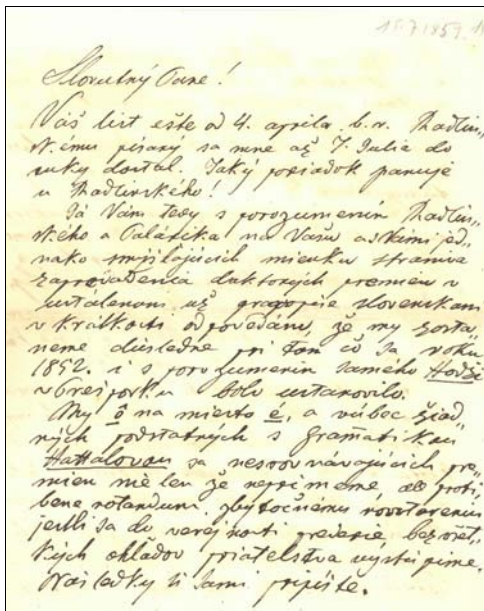 15.7.1859.
Slovutný Pane!
Váš list ešte od 4. apríla b. r. Radlin-
skému písaný sa mne až 7. Julia do
ruky dostal. Jaký poriadok panuje
u Radlinského!
Já Vám tedy s porozumením Radlin-
ského a Palárika na Vašu a s kými jed-
nako smýšlajúcich mienku straniva
zaprovádenia niektorých premien v
ustálenom už pravopise slovenskom
v krátkosti odpovedám, že my zosta-
neme dúsledne pri tom čo sa roku
1852. i s porozumením samého Hodži
v Prešporku bolo ustanovilo.
My ô na miesto é, a vúbec žiad-
ných podstatných s Gramatikou
Hattalovou sa nesrovnávajúcich pre-
mien nie len že neprimeme ale proti
bene notandum zbytočnému novotareniu
jestli sa do verejnosti prederie bez všet-
kých ohladov priatelstva vystúpime.
Následky si sami pripíšte.